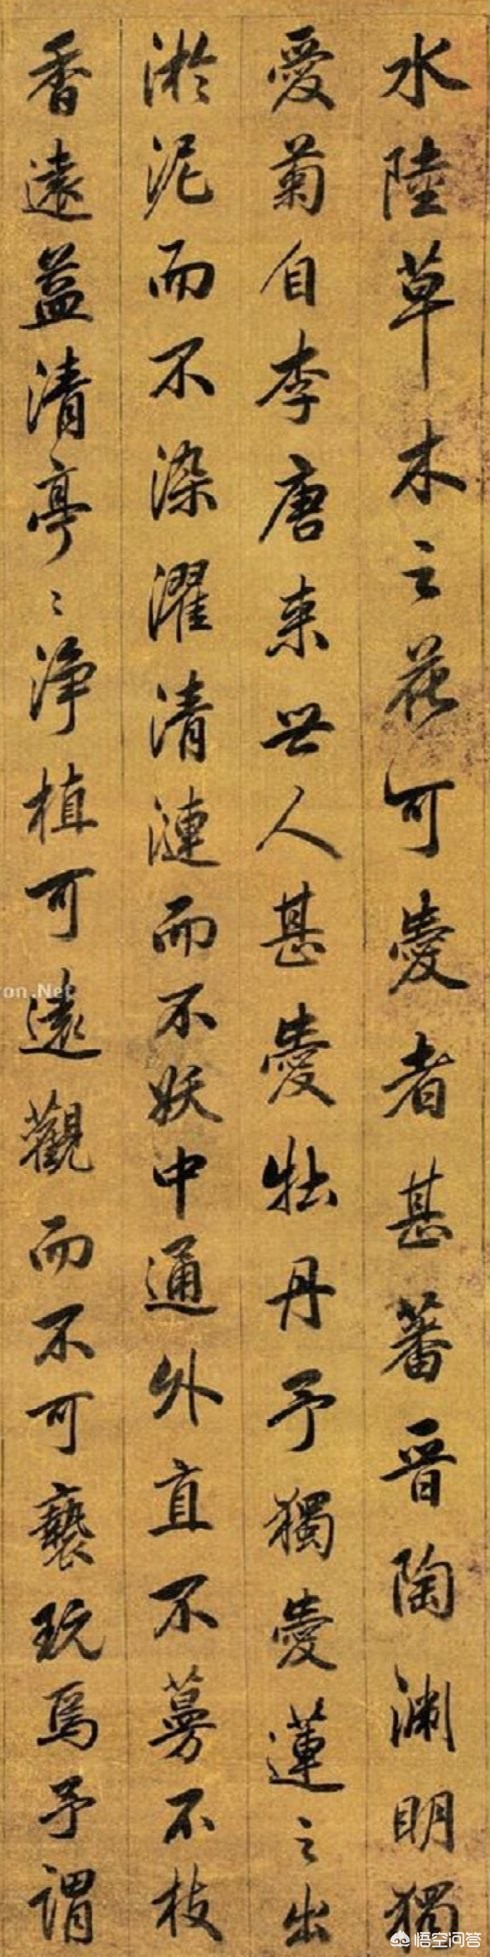 水陸草木之花可愛者甚蕃晋陶渊明獨
愛菊自李唐来世人甚愛牡丹予獨愛蓮之出
淤泥而不染濯清漣而不妖中通外直不蔓不枝
香遠益清亭〻淨植可遠觀而不可褻玩焉予謂
on.Net
悟空问答